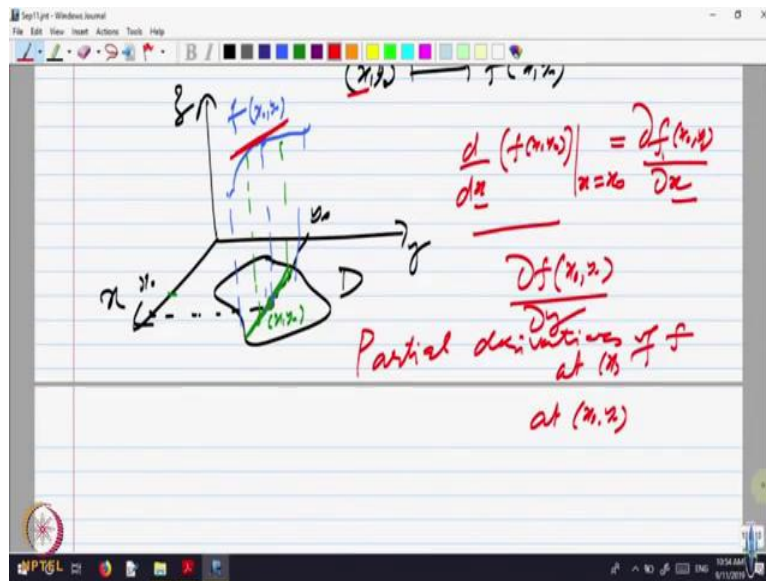 Sep11.jnt - Windows Journal
File Edit View Insert Actions Tools Help
B I
z
f(x₀,y₀)
y₀
y
x
x₀
D
(x₀,y₀)
d/dx (f(x,y₀))|x=x₀ = ∂f(x₀,y₀)/∂x
∂f(x₀,y₀)/∂y
Partial derivatives of f
at (x
at (x₀,y₀)
NPTEL
ENG
10:54 AM
9/11/2019